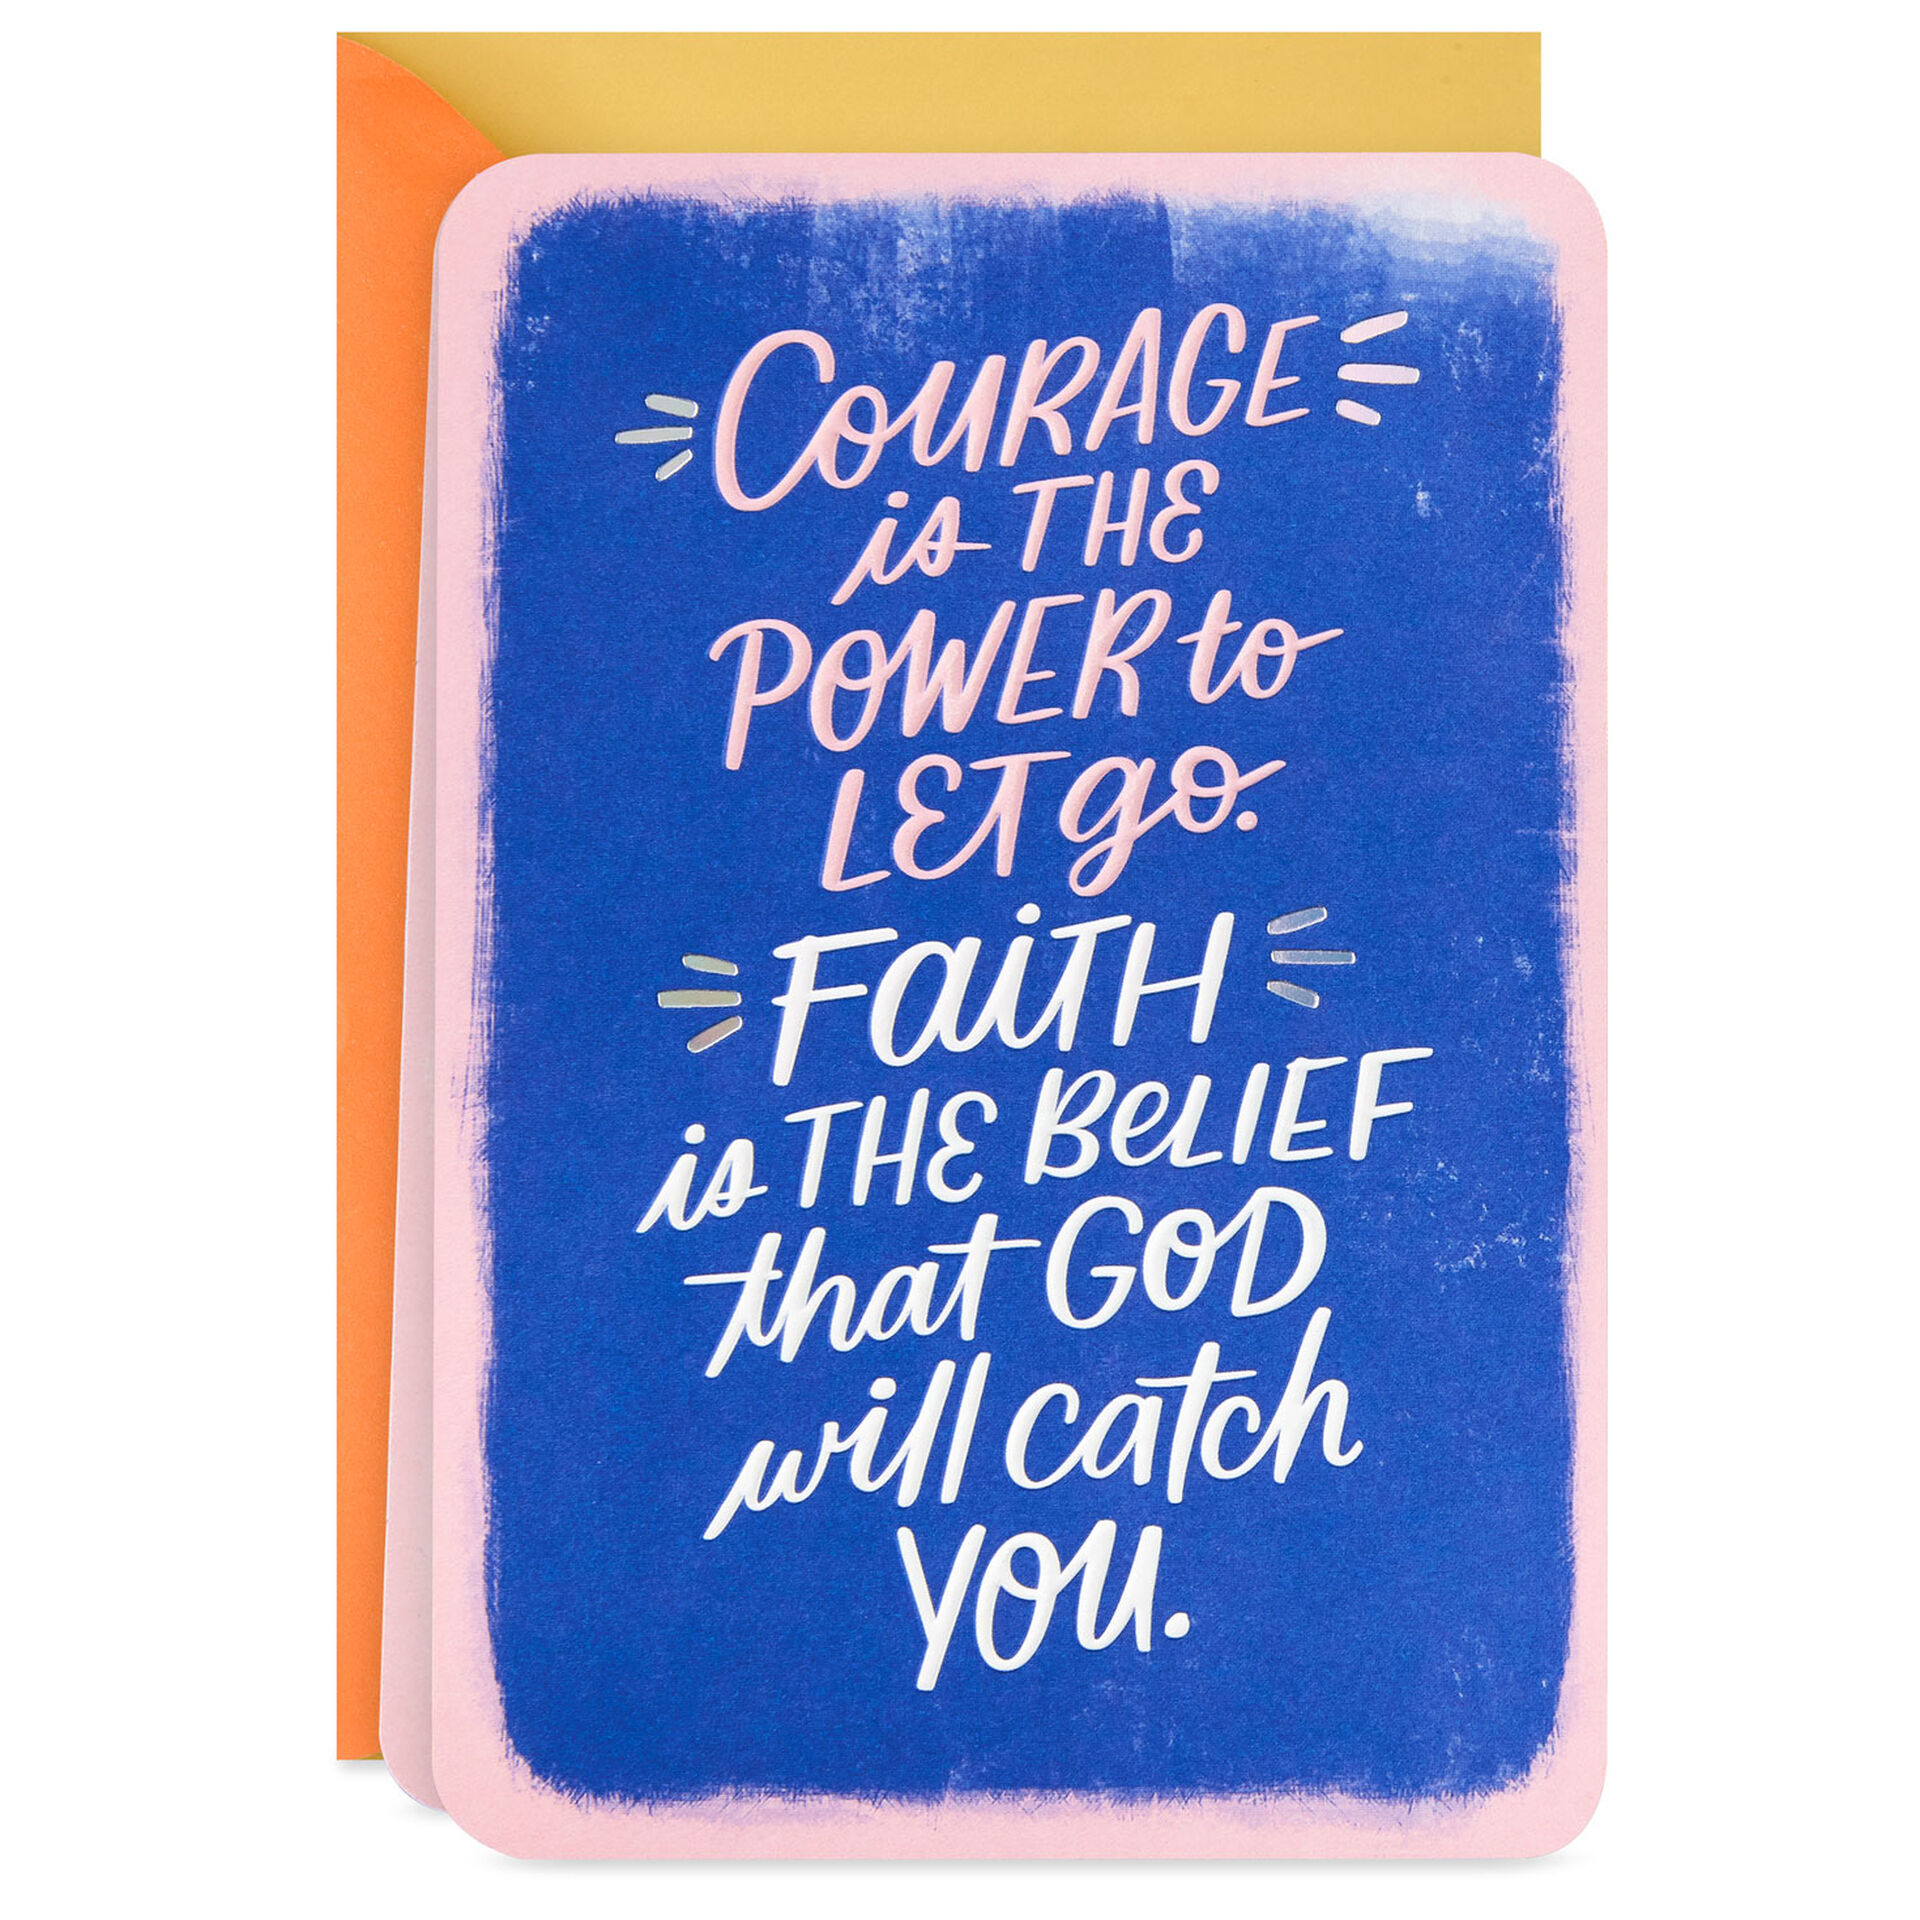 COURAGE
is THE
POWER to
LET go.
FAiTH
is THE BeLIEF
that GOD
will catch
YOU.